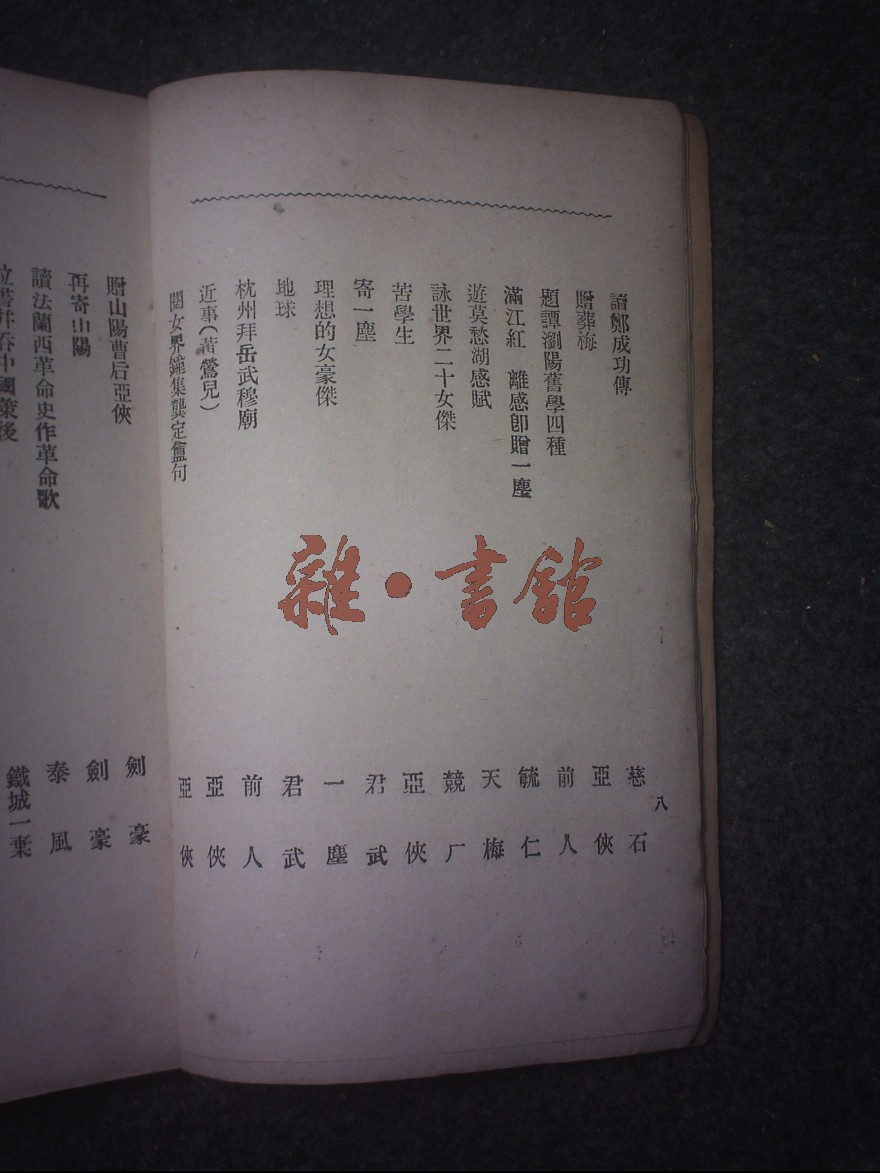 八
讀鄭成功傳 慈石
贈葬梅 亞俠
題譚瀏陽舊學四種 前人
滿江紅 離感卽贈一塵 毓仁
遊莫愁湖感賦 天梅
詠世界二十女傑 競厂
苦學生 亞俠
寄一塵 君武
理想的女豪傑 一塵
地球 君武
枕州拜岳武穆廟 前人
近事(著鶯兒) 亞俠
閱女界鐘集龔定盦句 亞俠
贈山陽曹后亞俠 劍豪
再寄山陽 劍豪
讀法蘭西革命史作革命歌 泰風
書并吞中國策後 鐵城一棄
雜·書館